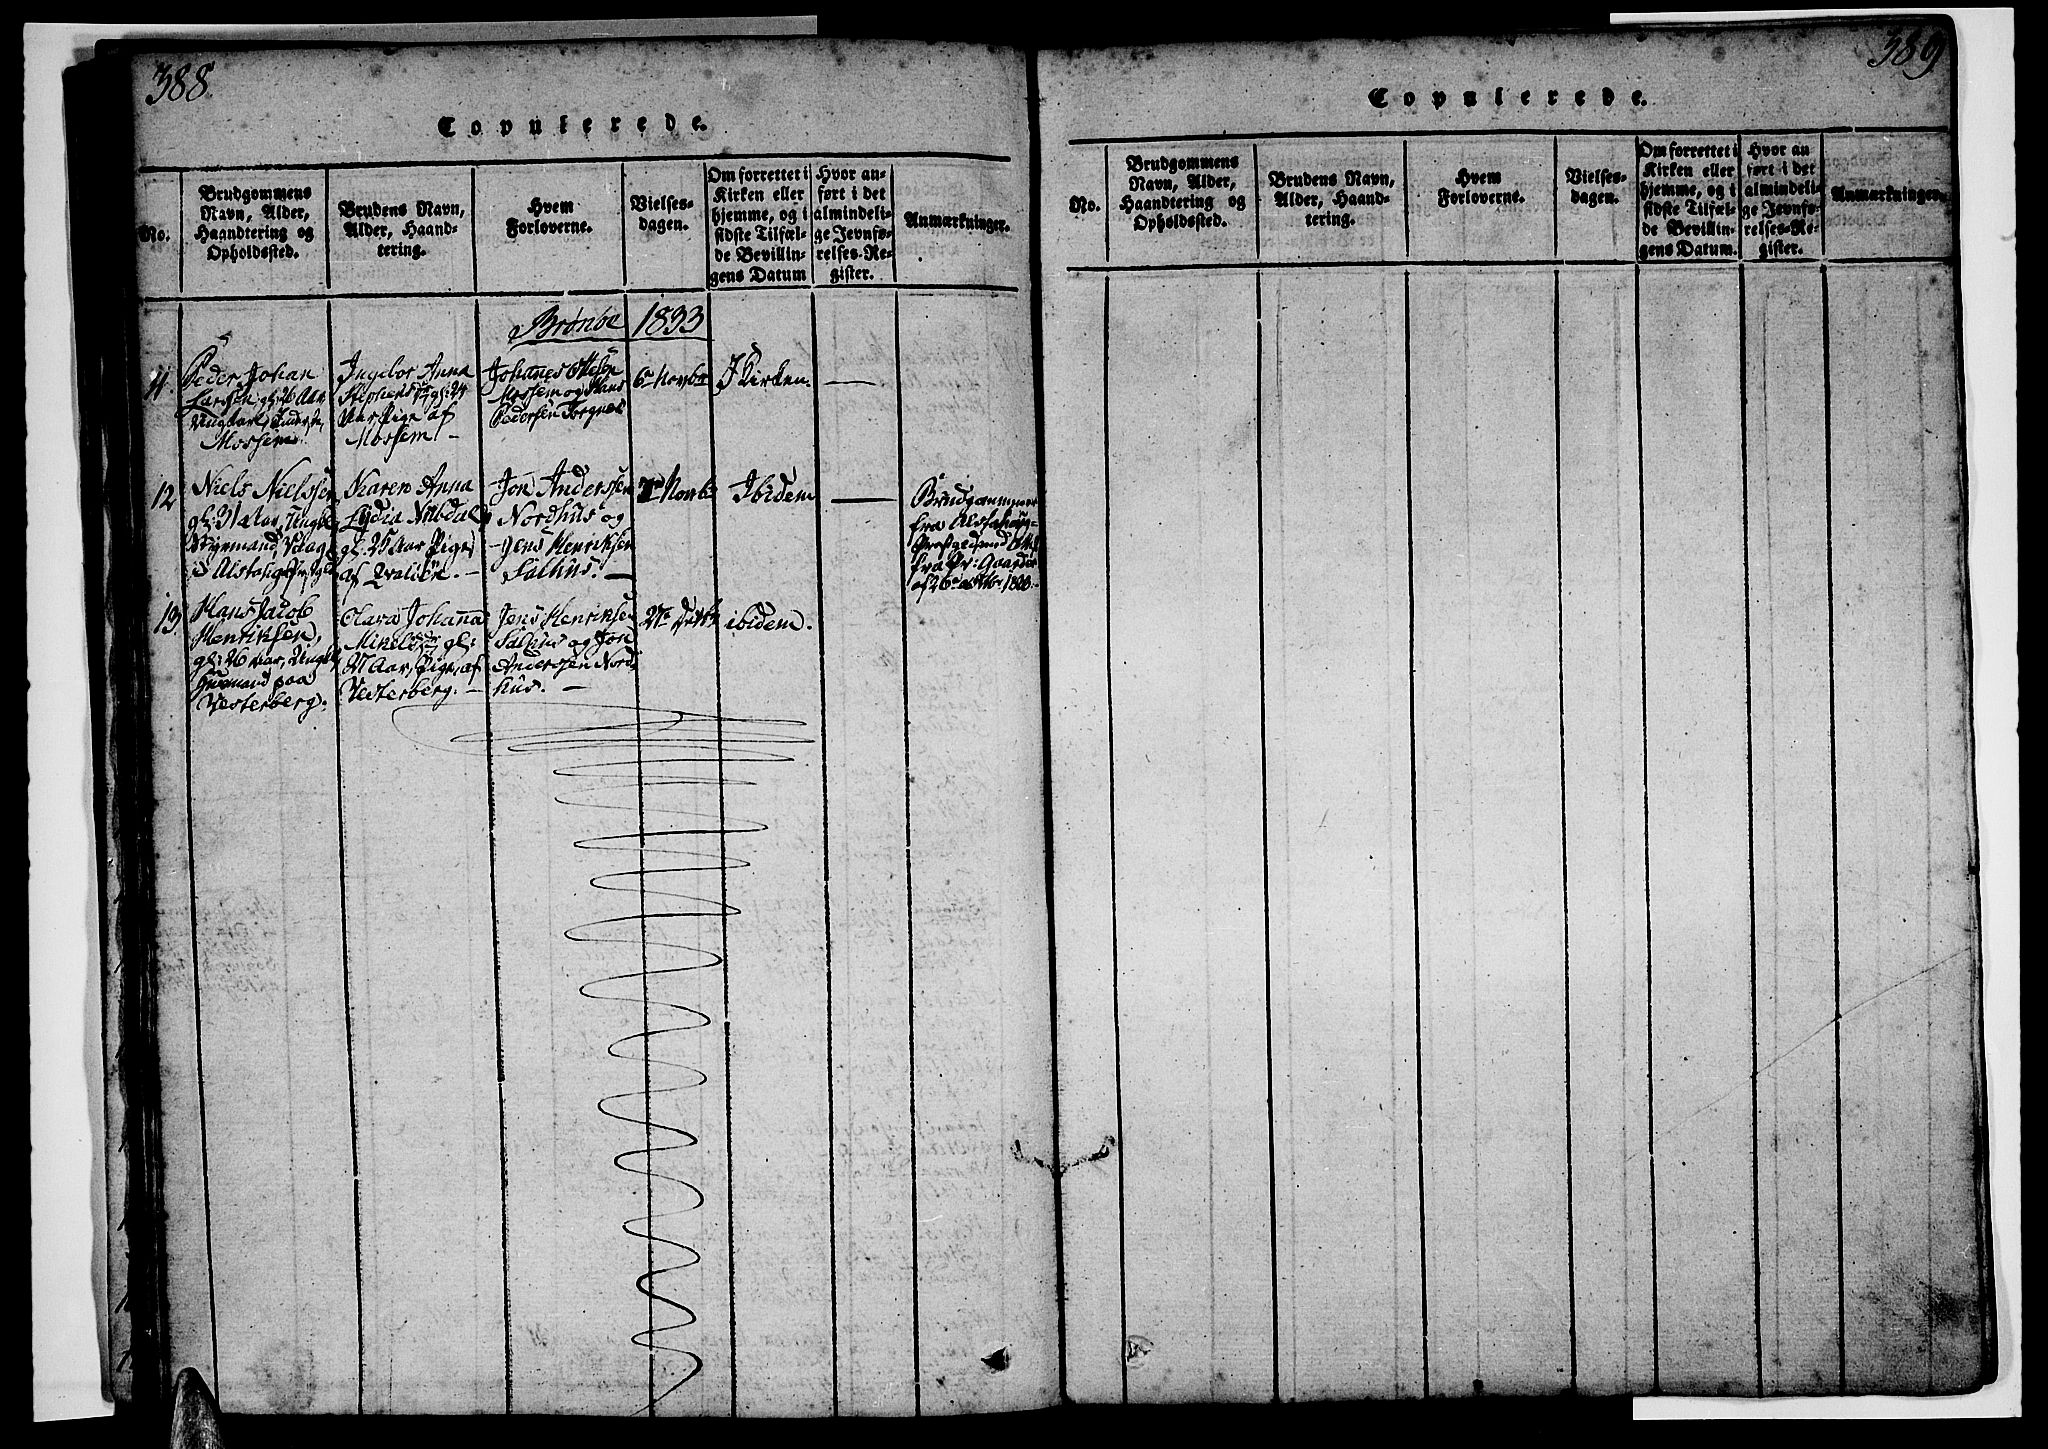 388
Copulerede.
No.
Brudgommens
Navn, Alder,
Haandtering og
Opholdssted.
Brudens Navn,
Alder, Haand-
tering.
Hvem
Forloverne.
Vielses-
dagen.
Om forrettet i
Kirken eller
hjemme, og i
sidste Tilfæl-
de Bevillin-
gens Datum
Hvor an-
ført i det
almindeli-
ge Jevnfø-
relses-Re-
gister.
Anmærkninger.
Brønøe 1833
11.
Peder Johan
Larssen gl: 26 Aar
Ungkarl
Mossem.
Ingebor Anna
gl: 24
Aar Pige af
Mossem
Johanes
Mossem og Hans
Pedersen Torgnes
6te Novbr
I Kirken.
12
Niels Nielssen
gl: 31 Aar, Ungk
Karen Anna
Lydia
gl: 25 Aar Pige
af
Jon Anderssen
Nordhus og
Jens Henriksen
Salhus.
Novbr
Ibidem
Brudgommen
fra Alstahoug
fra Pr: Gaarder
af 26de
13.
Hans Jacob
Henriksen,
gl: 26 Aar, Ungk
paa
Vesterberg.
Clara Johanna
gl:
27 Aar, Pige, af
Vesterberg.
Jens Henriksen
Salhus og Jon
Anderssen Nord-
hus.
ibidem.
389
Copulerede.
No.
Brudgommens
Navn, Alder,
Haandtering og
Opholdssted.
Brudens Navn,
Alder, Haand-
tering.
Hvem
Forloverne.
Vielses-
dagen.
Om forrettet i
Kirken eller
hjemme, og i
sidste Tilfæl-
de Bevillin-
gens Datum.
Hvor an
ført i det
almindeli-
ge Jevnfø-
relses-Re-
gister.
Anmærkninger.